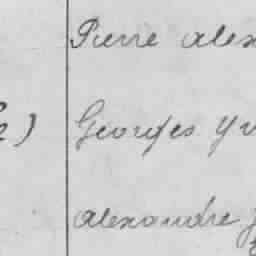 Pierre alex
) Georges Yv
alexandre J